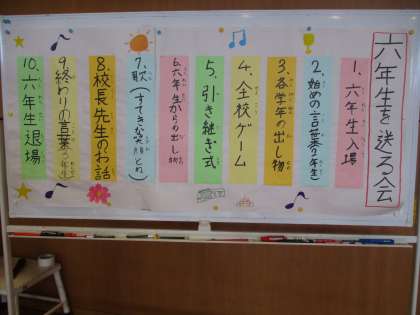 六年生を送る会
1. 六年生入場
2. 始めの言葉(2年生)
3. 各学年の出し物
4. 全校ゲーム
5. 引き継ぎ式
6. 六年生からの出し物
7. 歌(すてきな笑顔
8. 校長先生のお話
9. 終わりの言葉
10. 六年生退場